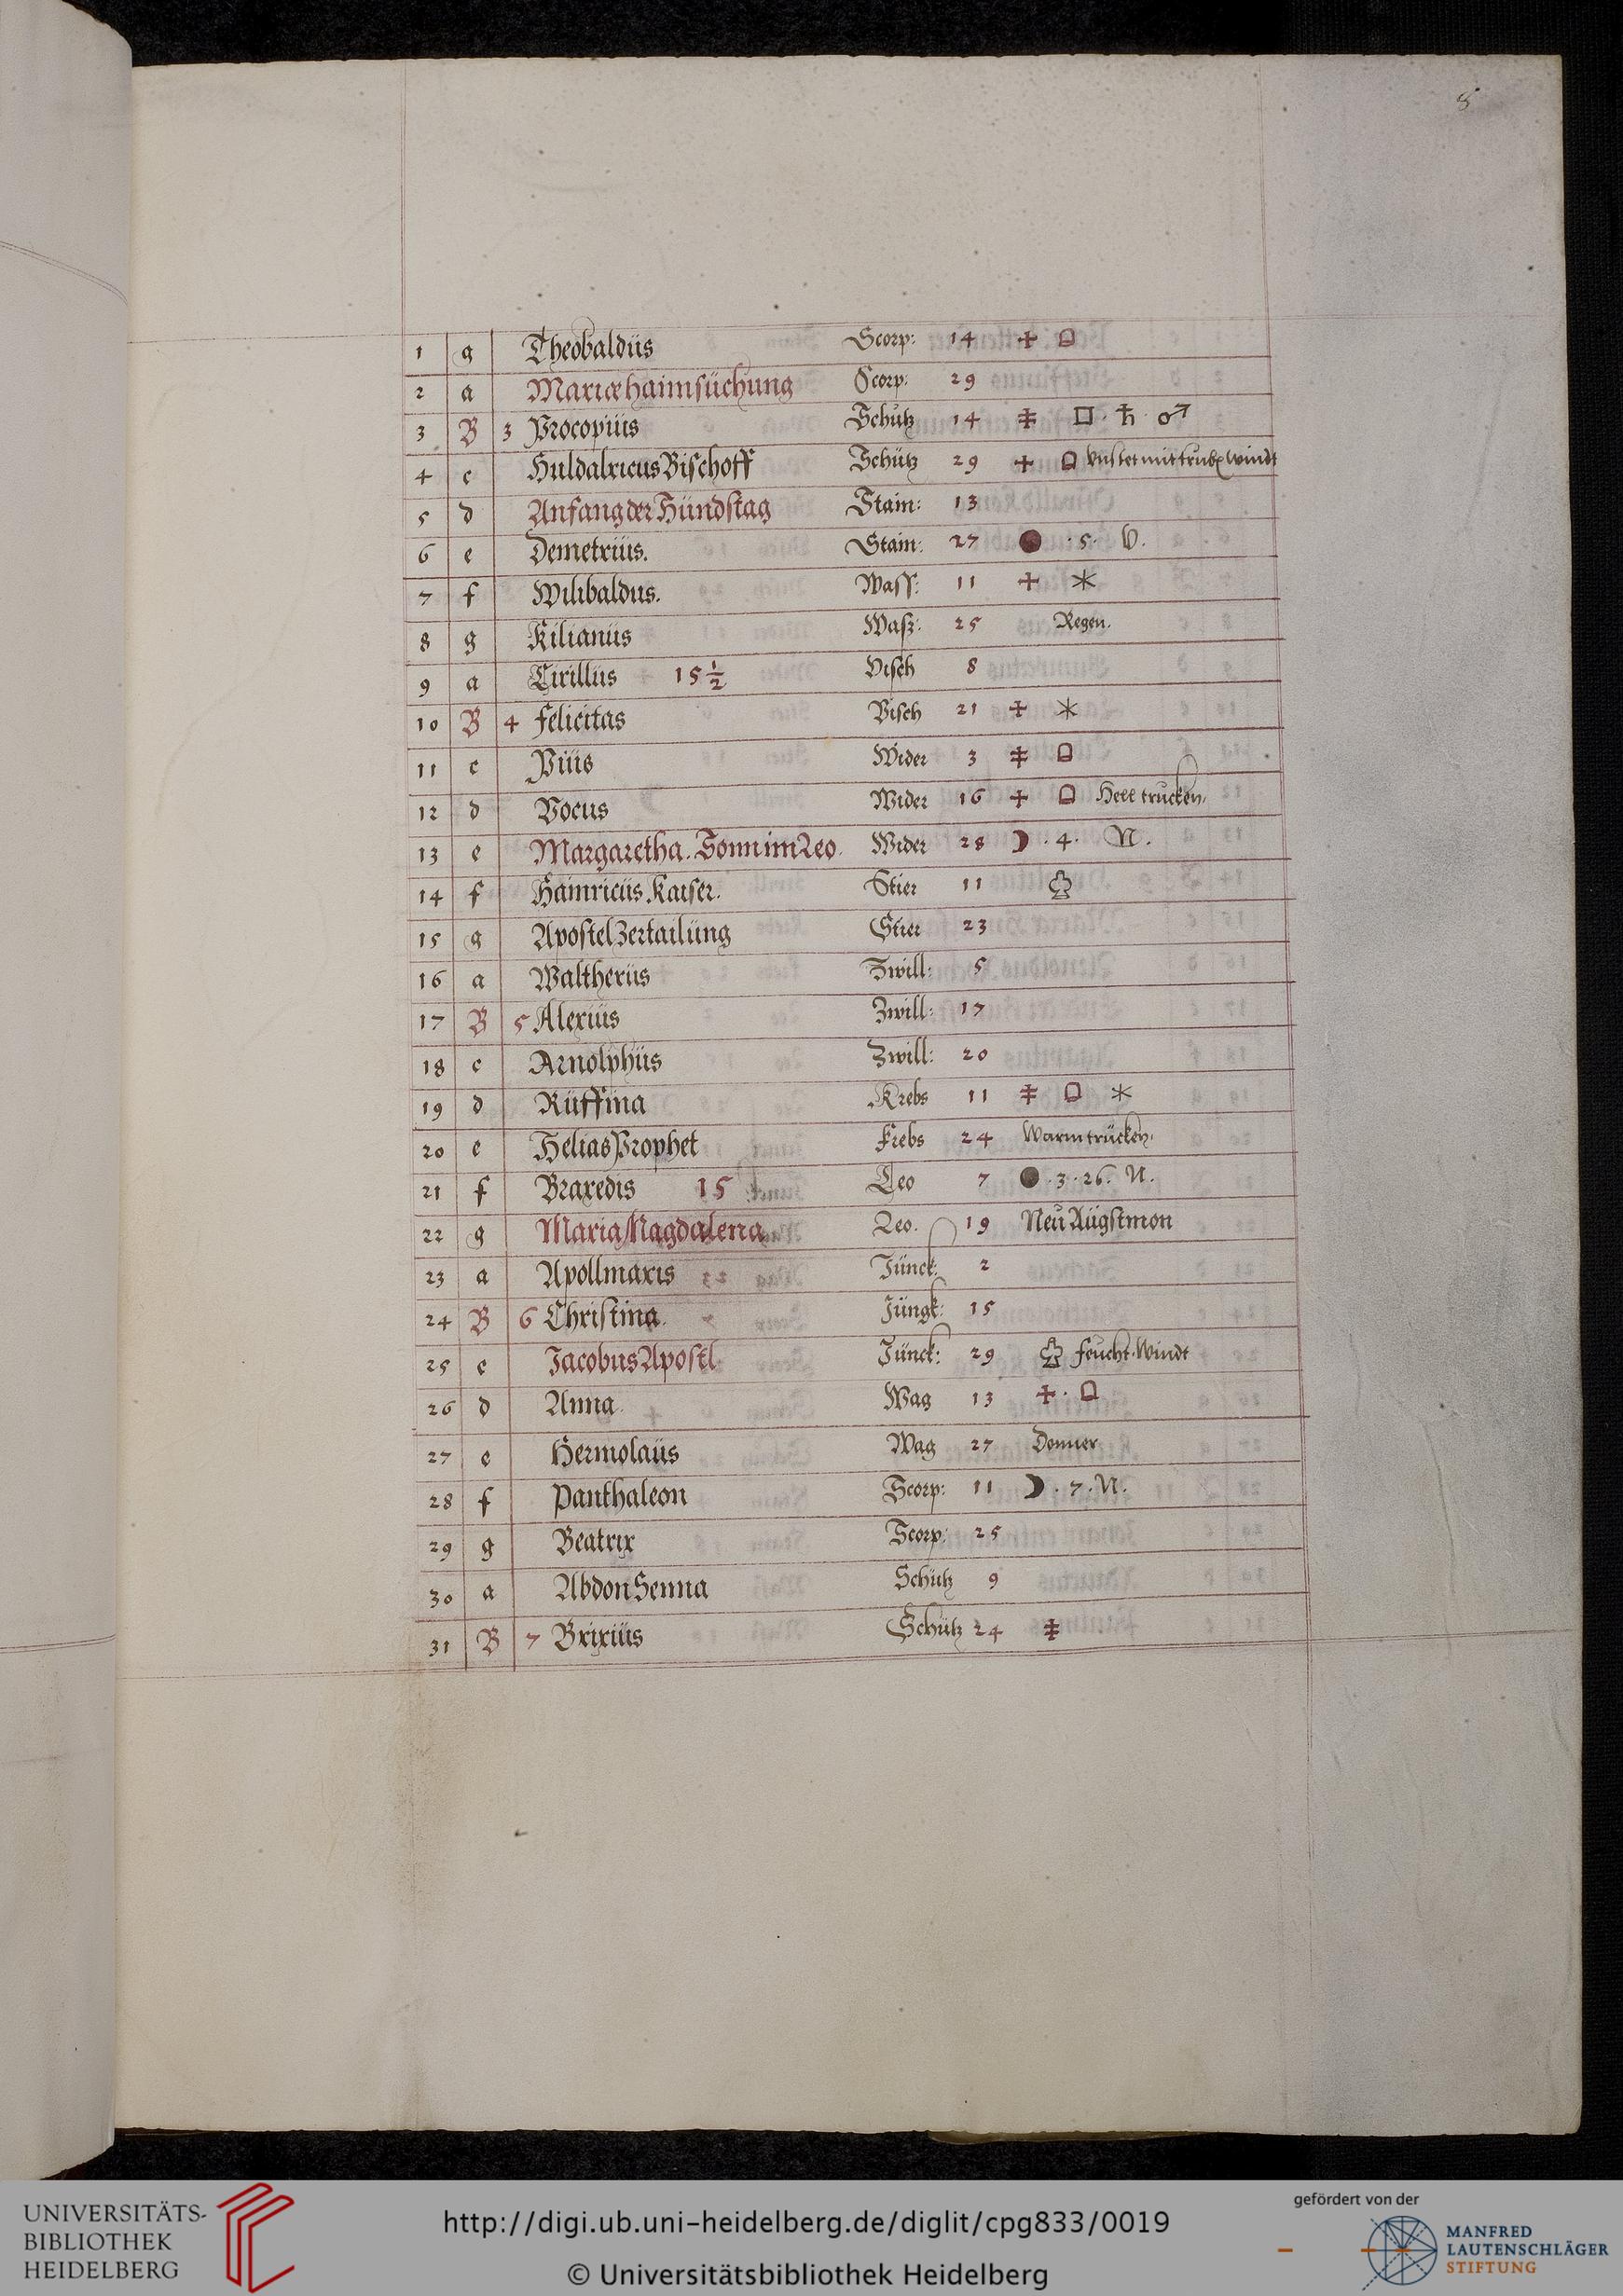 8
1 g Theobaldüs Scorp: 14 ☩
2 a Mariæ haimsüchung Scorp: 29
3 B 3 Procopiüs Schütz 14 □ · ♄ · ♂
4 c Huldalricus Bischoff Schütz 29 Vnstet mit trub windt
5 d Anfang der Hündstag Stain: 13
6 e Demetriüs. Stain: 27 ● · 5 · V.
7 f Wilibaldus. Wass: 11 ✢ ✶
8 g Kilianüs Wasz: 25 Regen.
9 a Cirillüs 15 ½ Visch 8
10 B 4 Felicitas Visch 21 ✢ ✶
11 c Piüs Wider 3
12 d Pocus Wider 16 Hell trucken.
13 e Margaretha. Sonn im Leo. Wider 28 ☽ · 4 · N.
14 f Hainricüs Kaiser. Stier 11
15 g Apostel Zertailüng Stier 23
16 a Waltherüs Zwill: 5
17 B 5 Alexiüs Zwill: 17
18 c Arnolphüs Zwill: 20
19 d Rüffina Krebs 11 ✶
20 e Helias Prophet Krebs 24 Warm trücken.
21 f Braxedis 15 Leo 7 ● · 3 · 26. N.
22 g Maria Magdalena Leo. 19 Neü Aügstmon
23 a Apollinaris Jünck: 2
24 B 6 Christina. Jüngk: 15
25 c Jacobus Apostl Jünck: 29 feucht. Windt
26 d Anna. Wag 13
27 e Hermolaüs Wag 27 Donner
28 f Panthaleon Scorp: 11 ☽ · 7 · N.
29 g Beatrix Scorp: 25
30 a Abdon Senna Schütz 9
31 B 7 Brixiüs Schütz 24
UNIVERSITÄTS-
BIBLIOTHEK
HEIDELBERG
http://digi.ub.uni-heidelberg.de/diglit/cpg833/0019
© Universitätsbibliothek Heidelberg
gefördert von der
MANFRED
LAUTENSCHLÄGER
STIFTUNG